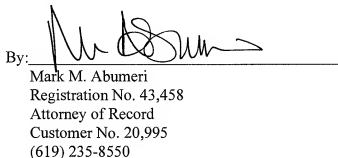 By:
Mark M. Abumeri
Registration No. 43,458
Attorney of Record
Customer No. 20,995
(619) 235-8550